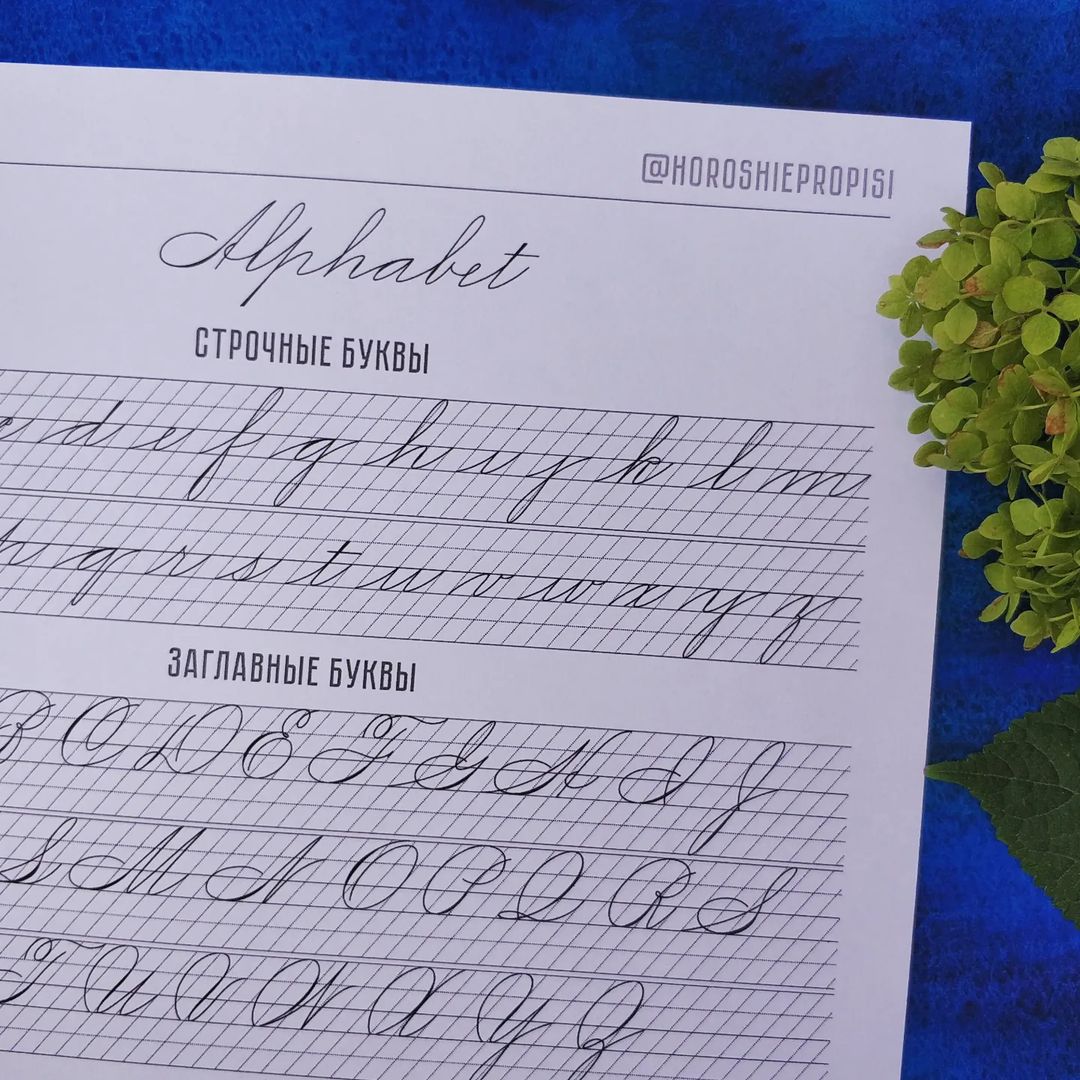 @HOROSHIEPROPISI
Alphabet
СТРОЧНЫЕ БУКВЫ
d e f g h i j k l m
p q r s t u v w x y z
ЗАГЛАВНЫЕ БУКВЫ
B C D E F G H I J
L M N O P Q R S
T U V W X Y Z